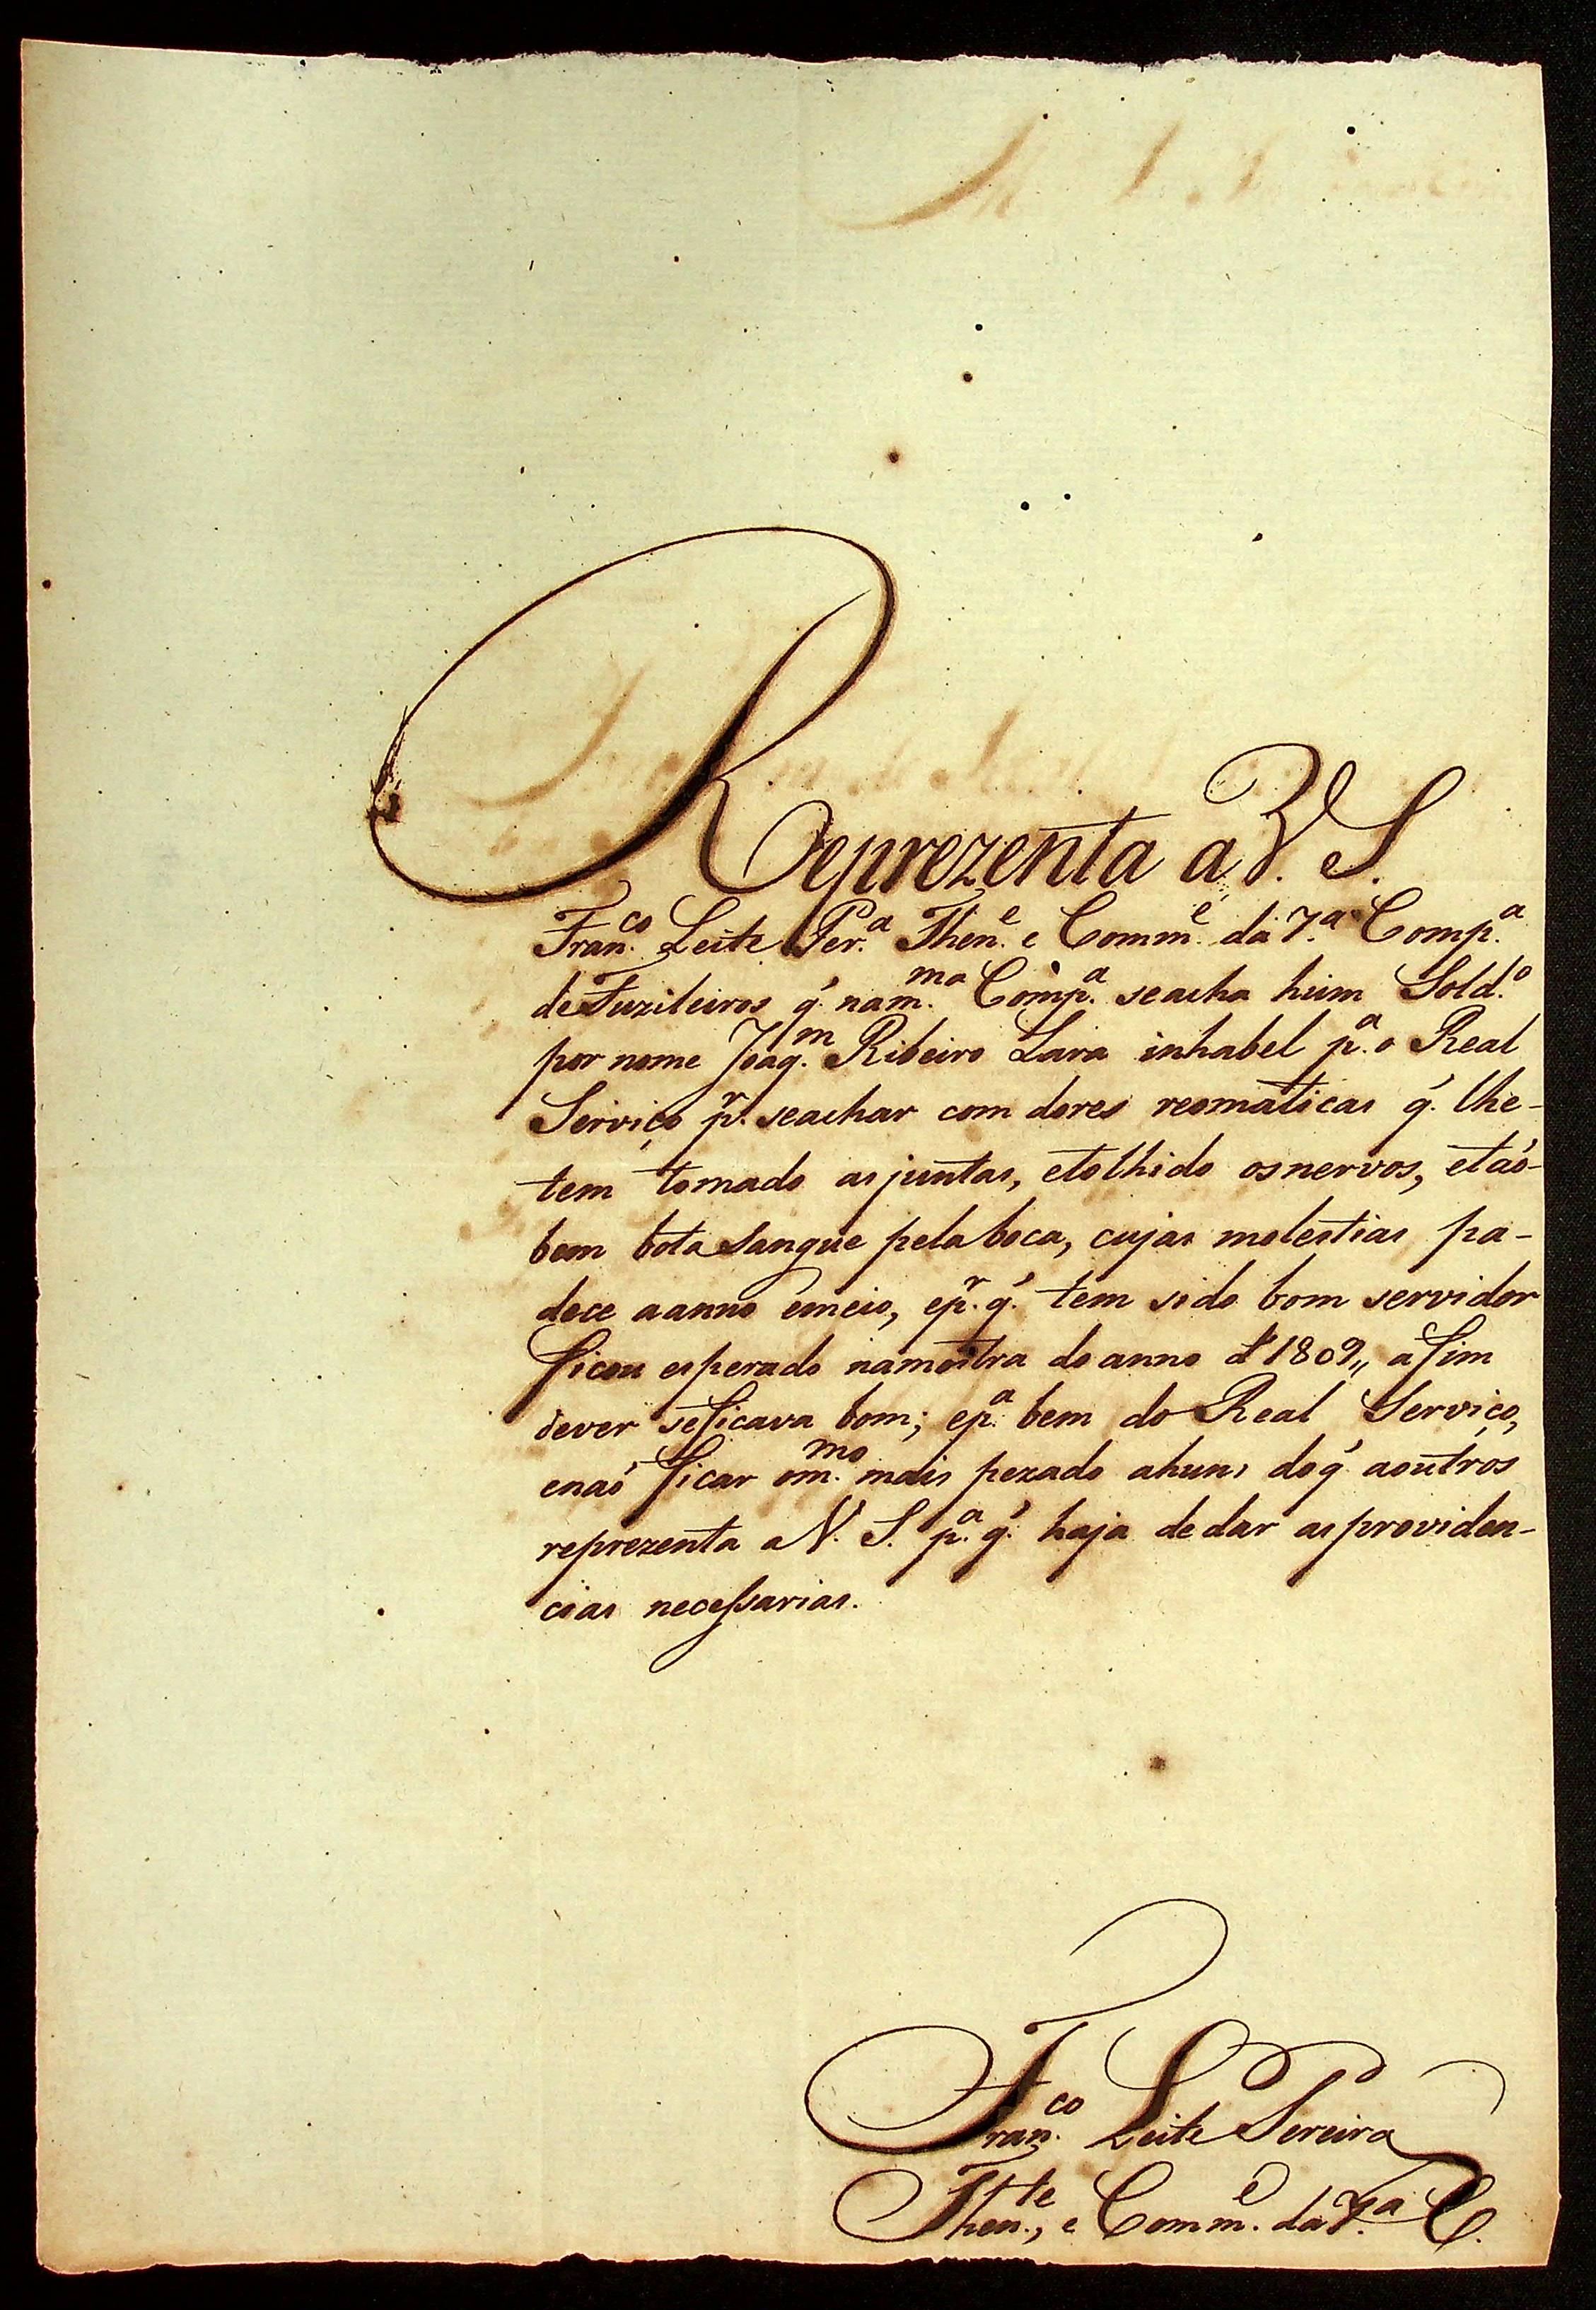 Reprezenta a V. S.
Fran.co Leite Per.a Then.e e Comm.e da 7.a Comp.a
de Fuzileiros q̃. nam.ma Comp.a seacha hum Sold.o
por nome Joaq.m Ribeiro Lara inhabel p.a o Real
Serviço p.r seachar com dores reomaticas q̃. lhe-
tem tomado as juntas, etolhido osnervos, etáo-
bem bota Sangue pela boca, cujas molestias pa-
dece aanno emeio, ep.r q̃. tem sido bom servidor
ficou esperado namostra do anno d 1809,, afim
dever seficava bom; ep.a bem do Real Serviço,
enaó ficar om.mo mais pezado ahuns doq̃ aoutros
reprezenta a V. S. p.a q̃. haja dedar asproviden-
cias necessarias.
Fran.co Leite Pereira
Then.te, e Comm.e da 7.a C.